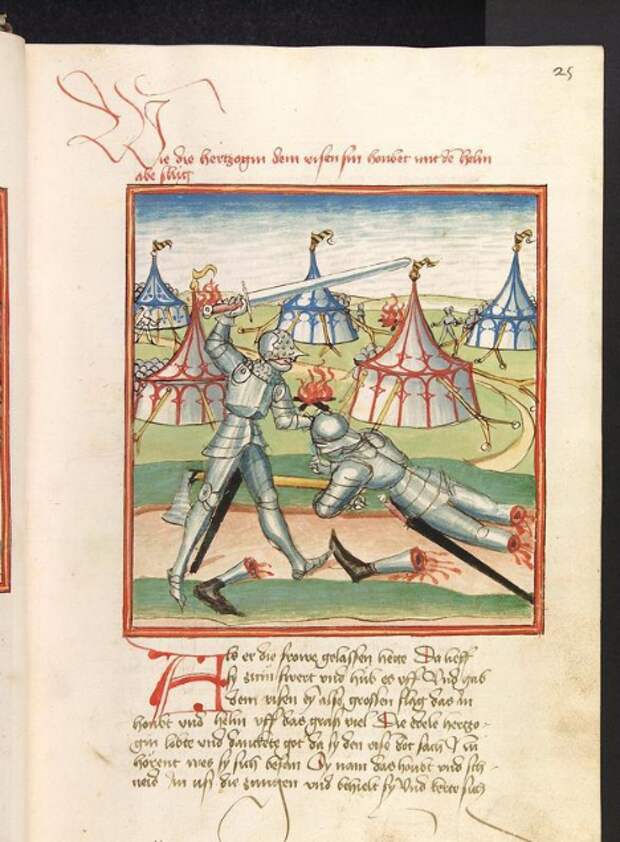 25
Wie die hertzogin dem risen sin houbet mit dem helm
abe slug
Als er die frowe gelassen hette Da lieff
sy zum swert vnd hub es vff Vnd gab
dem risen ey also grossen slag das im
houbt vnd helm vff das graß viel Die edele hertzo-
gin lobte vnd danckete got da sy den rise dot sach Nu
hörent wes sy sich began Sy nam das houbt vnd sch-
neid im vß die zungen vnd behielt sy Vnd kerte sich